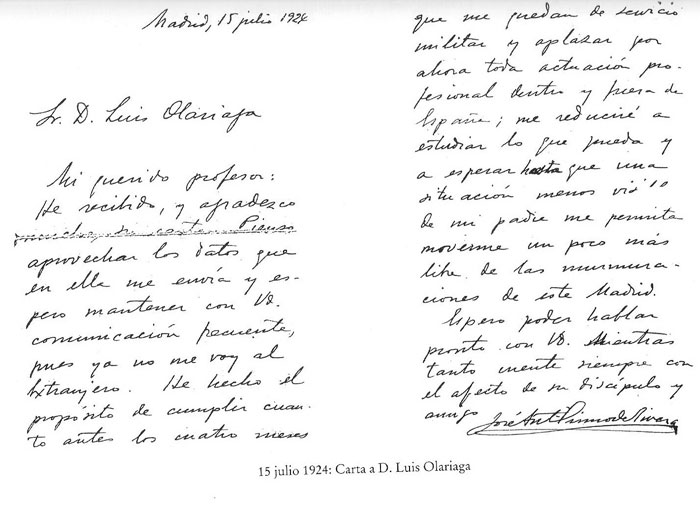 Madrid, 15 julio 1924
Sr. D. Luis Olariaga
Mi querido profesor:
He recibido, y agradezco
mucho, su carta. Pienso
aprovechar los datos que
en ella me envía y es-
pero mantener con Vd.
comunicación frecuente,
pues ya no me voy al
Extranjero. He hecho el
propósito de cumplir cuan-
to antes los cuatro meses
que me quedan de servicio
militar y aplazar por
ahora toda actuación pro-
fesional dentro y fuera de
España; me reduciré a
estudiar lo que pueda y
a esperar hasta que una
situación menos
de mi padre me permita
moverme un poco más
libre de las murmura-
ciones de este Madrid.
Espero poder hablar
pronto con Vd. Mientras
tanto cuente siempre con
el afecto de su discípulo y
amigo José Ant. Primo de Rivera
15 julio 1924: Carta a D. Luis Olariaga